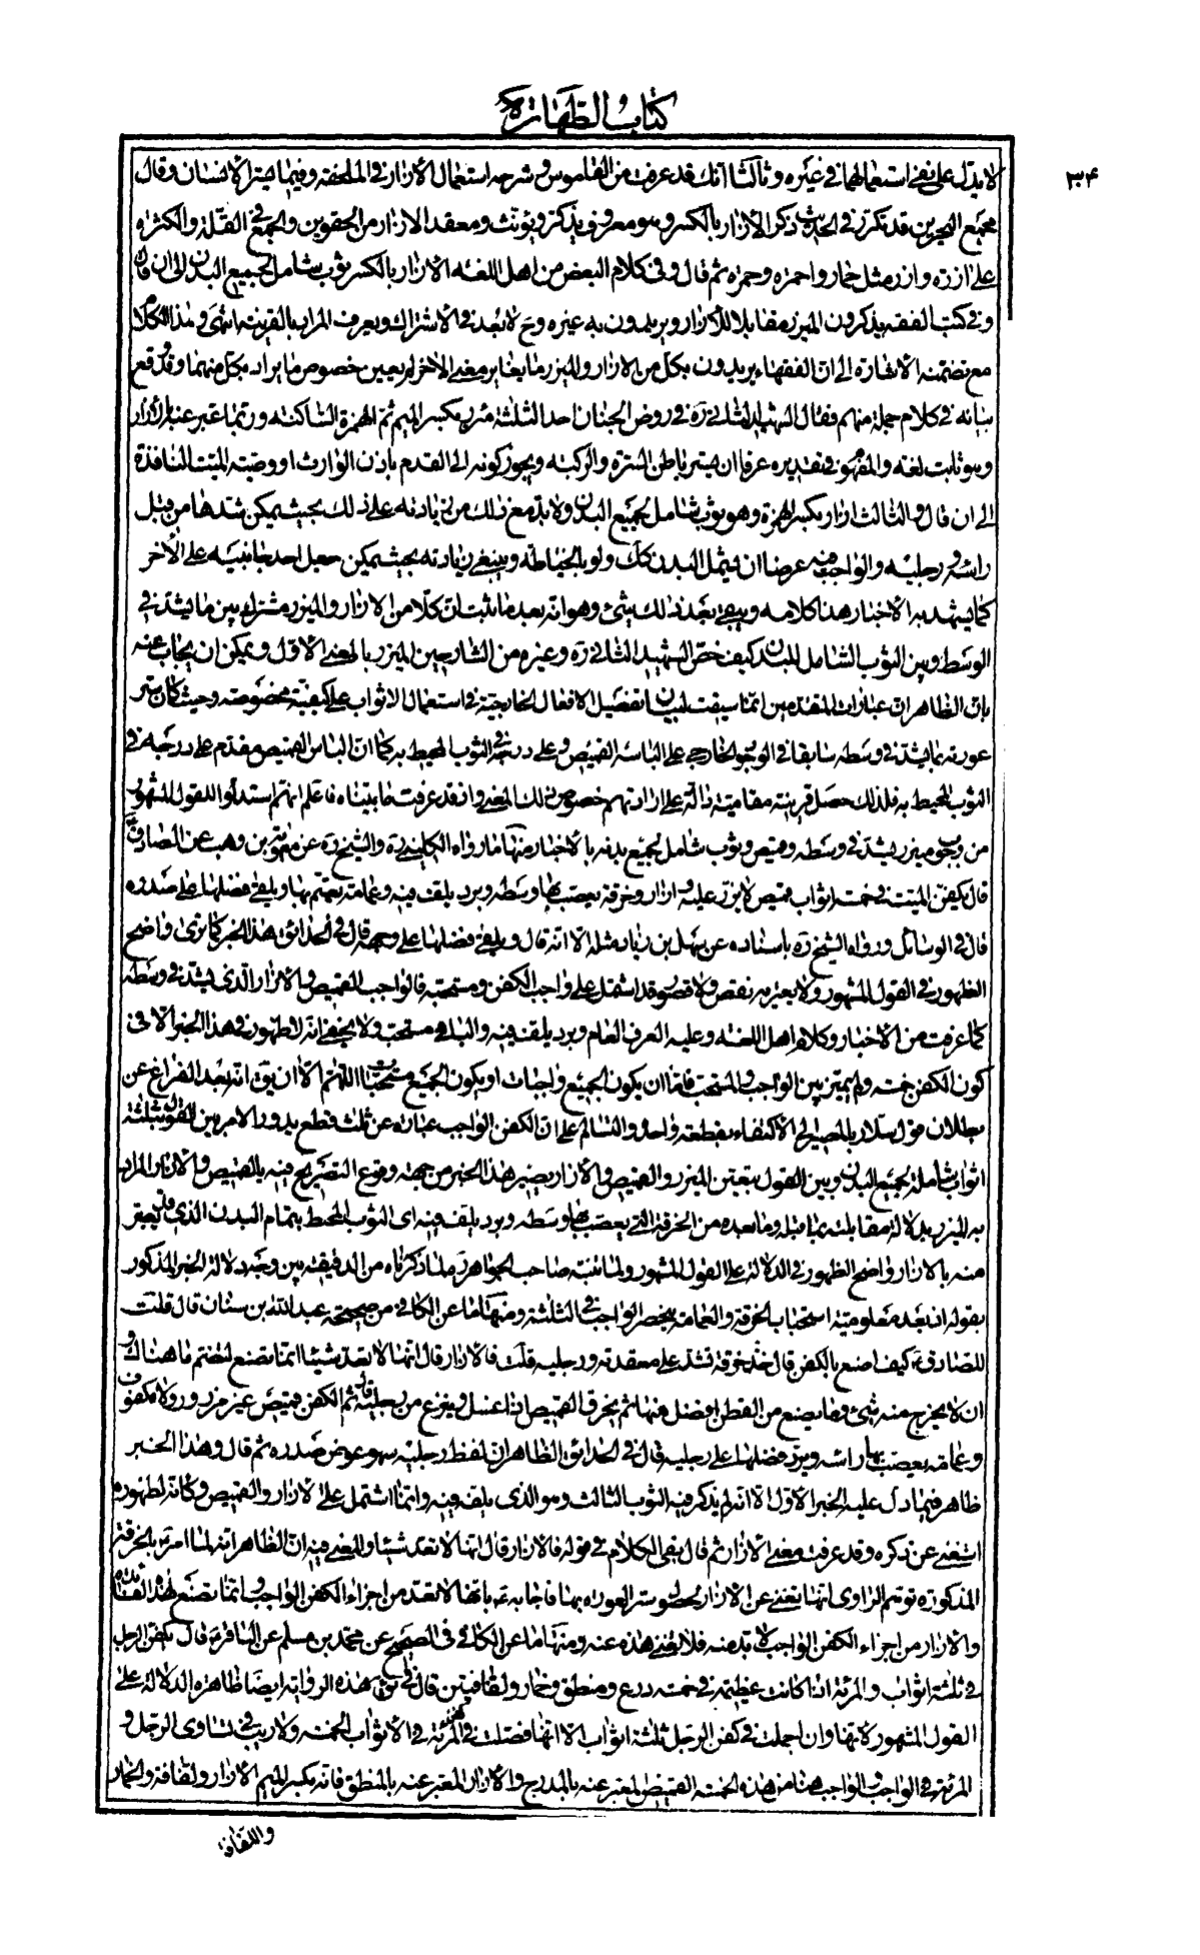 كتاب الطهارة
٣٤
لا يدل على نفى استعمالهما فى غيره وثالثا انك قد عرفت من القاموس وشرحه استعمال الازار فى الملحفه وفيما يستر الانسان وقال
مجمع البحرين قد تكرر فى الحديث ذكر الازار بالكسر وهو معروف يذكر ويؤنث ومعقد الازار من الحقوين والجمع فى القلة والكثرة
على ازرة وازر مثل خمار واحمرة وحمرة ثم قال وفى كلام البعض من اهل اللغه الازار بالكسر ثوب شامل لجميع البدن الى ان قال
وفى كتب الفقه يذكرون الميزر مقابلا للازار ويريدون به غيره وح لا بعد فى الاشتراك ويعرف المراد بالقرينة انتهى وهذا الكلام
مع تضمنه الاشارة الى ان الفقهاء يريدون بكل من الازار والميزر ما يغاير معنى الاخر لم يعين خصوص ما يراد بكل منهما وقد وقع
بيانه فى كلام جملة منهم فقال الشهيد الثانى ره فى روض الجنان احد الثلثة مئزر بكسر الميم ثم الهمزة الساكنه وربما عبر عنه بالازار
وهو ثابت لغه والمفهوم فى تقديره عرفا ان يستر ما بين السرة والركبه ويجوز كونه الى القدم باذن الوارث او وصية الميت النافذة
الى ان قال والثالث ازار بكسر الهمزة وهو ثوب شامل لجميع البدن ولا بد مع ذلك من زيادته على ذلك بحيث يمكن شدها من قبل
راسه ورجليه والواجب منه عرضا ان يشمل البدن كك ولو بالخياطه وينبغى زيادته بحيث يمكن جعل احد جانبيه على الاخر
كما يشهد به الاخبار هذا كلامه ويبقى بعد ذلك شىء وهو انه بعد ما ثبت ان كلا من الازار والميزر مشترك بين ما يشد فى
الوسط وبين الثوب الشامل للبدن كيف خص الشهيد الثانى ره وغيره من الشارحين الميزر بالمعنى الاول ويمكن ان يجاب عنه
بان الظاهر ان عبارات المتقدمين انما سيقت لبيان تفصيل الافعال الخارجية فى استعمال الاثواب على كيفية مخصوصه وحيث كان ستر
عورته بما يشد فى وسطه سابقا فى الوجود الخارجى على الباسه القميص وعلى درجه فى الثوب المحيط به كما ان الباس القميص مقدم على درجه فى
الثوب المحيط به فلذلك حصل قرينة مقامية دالة على ارادتهم خصوص ذلك المعنى واذ قد عرفت ما بيناه فاعلم انهم استدلوا للقول المشهور
من وجوب ميزر يشد فى وسطه وقميص وثوب شامل لجميع بدنه بالاخبار منها ما رواه الكلينى ره والشيخ ره عن معوية بن وهب عن الصادق ع
قال يكفن الميت فى خمسة اثواب قميص لا يزر عليه وازار وخرقة يعصب بها وسطه وبرد يلف فيه وعمامة يعتم بها ويلقى فضلها على صدره
قال فى الوسائل ورواه الشيخ ره باسناده عن سهل بن زياد مثله الا انه قال ويلقى فضلها على وجهه قال فى الحدائق هذا الخبر كما ترى واضح
الظهور فى القول المشهور ولا يعتريه نقص ولا قصور قد اشتمل على واجب الكفن ومستحبه فالواجب القميص والازار الذى يشد فى وسطه
كما عرفت من الاخبار وكلام اهل اللغه وعليه العرف العام وبرد يلف فيه والباقى مستحب ولا يخفى انه لا ظهور فى هذا الخبر الا فى
كون الكفن خمسه ولم يميز بين الواجب والمستحب فاما ان يكون الجميع واجبات او يكون الجميع مستحبات اللهم الا ان يق انه بعد الفراغ عن
بطلان قول سلار بالمصير الى الاكتفاء بقطعه واحدة والتسالم على ان الكفن الواجب عبارة عن ثلث قطع يدور الامر بين القول بثلثة
اثواب شاملة لجميع البدن وبين القول بتعين الميزر والقميص والازار يصير هذا الخبر من جهة وقوع التصريح فيه بالقميص والازار المراد
به الميزر بدلالة مقابلته بما قبله وما بعده من الخرقة التى يعصب بها وسطه وبرد يلف فيه اى الثوب المحيط بتمام البدن الذى قد يعبر
عنه بالازار واضح الظهور فى الدلالة على القول المشهور ولما تنبه صاحب الجواهر ره لما ذكرناه من الدقيقه بين وجه دلالة الخبر المذكور
بقوله اذ بعد معلومية استحباب الخرقة والعمامة ينحصر الواجب فى الثلثة ومنها ما عن الكافى من صحيحة عبد الله بن سنان قال قلت
للصادق ع كيف اصنع بالكفن قال خذ خرقة فتشد على مقعدته ورجليه قلت فالازار قال انها لا تعد شيئا انما تصنع لتضم ما هناك و
ان لا يخرج منه شىء وما يصنع من القطن افضل منها ثم يخرق القميص اذا غسل وينزع من رجليه قال ثم الكفن قميص غير مزرور ولا مكفوف
وعمامة يعصب بها راسه ويرد فضلها على رجليه قال فى الحدائق الظاهر ان لفظ رجليه سهو عوض صدره ثم قال وهذا الخبر
ظاهر فيما دل عليه الخبر الاول الا انه لم يذكر فيه الثوب الثالث وهو الذى يلف فيه وانما اشتمل على الازار والقميص وكانه لظهوره
استغنى عن ذكره وقد عرفت معنى الازار ثم قال بقى الكلام فى قوله فالازار قال انها لا تعد شيئا والمعنى فيه ان الظاهر انه لما امره بالخرقة
المذكورة توهم الراوى انها تغنى عن الازار لحصول ستر العورة بها فاجابه ع بانها لا تعد من اجزاء الكفن الواجب وانما تصنع لهذه الفائدة
والازار من اجزاء الكفن الواجب لا بد منه فلا تغنى هذه عنه ومنها ما عن الكافى فى الصحيح عن محمد بن مسلم عن الباقر ع قال يكفن الرجل
فى ثلثة اثواب والمرئة اذا كانت عظيمة فى خمسة درع ومنطق وخمار ولفافتين قال فى ئق هذه الرواية ايضا ظاهرة الدلالة على
القول المشهور لانها وان اجملت فى كفن الرجل ثلثة اثواب الا انها فصلت فى كفن المرئة فى الاثواب الخمسة ولا ريب فى تساوى الرجل و
المرئة فى الواجب والواجب هنا من هذه الخمسة القميص المعبر عنه بالدرع والازار المعبر عنه بالمنطق فانه بكسر الميم الازار ولفافة والخمار
واللفافة